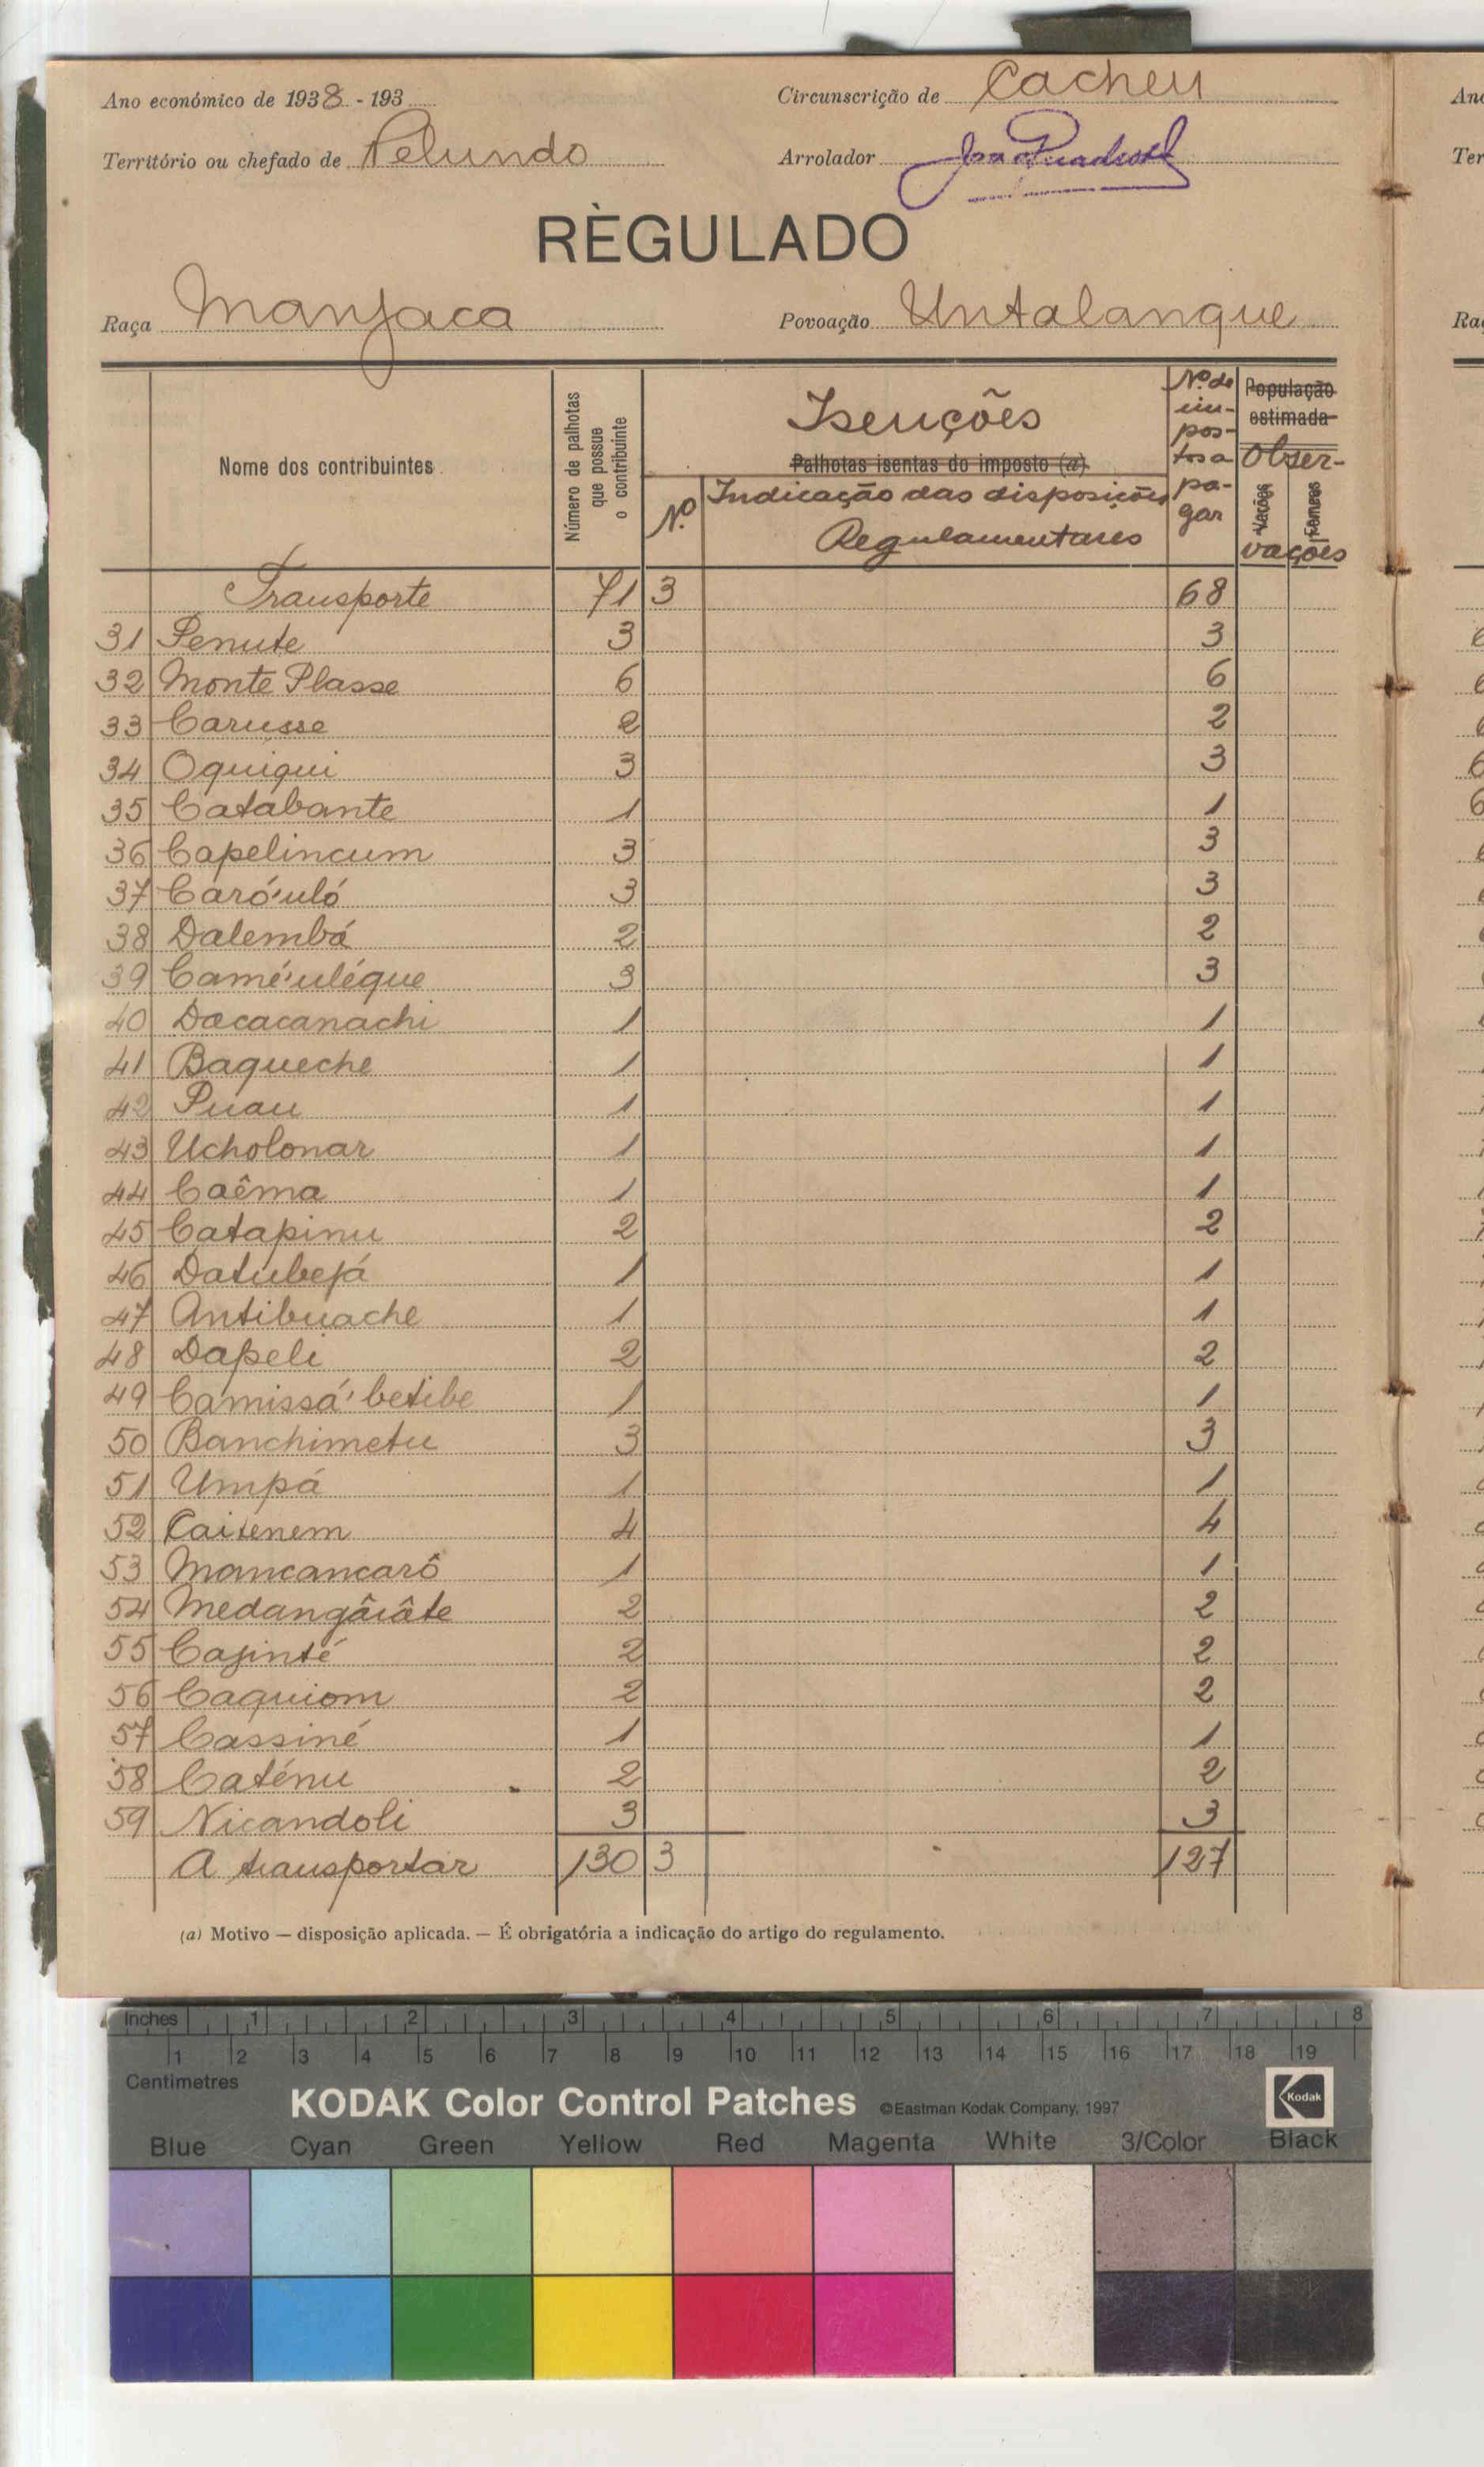 Ano económico de 1938 - 193
Circunscrição de Cacheu
Território ou chefado de Pelundo
Arrolador
RÈGULADO
Raça Manjaca
Povoação Untalanque
Nome dos contribuintes
Número de palhotas que possue o contribuinte
Isenções
Palhotas isentas do imposto (a)
Nº
Indicação das disposições Regulamentares
Nº de impostos a pagar
População estimada
Observações
Varões
Femeas
Transporte 71 3 68
31 Penute 3 3
32 Monte Plasse 6 6
33 Carusse 2 2
34 Oquiqui 3 3
35 Catabante 1 1
36 Capelincum 3 3
37 Caró'uló 3 3
38 Dalembá 2 2
39 Camé'uléque 3 3
40 Dacacanachi 1 1
41 Baqueche 1 1
42 Puau 1 1
43 Ucholonar 1 1
44 Caêma 1 1
45 Catapinu 2 2
46 Datubejá 1 1
47 Antibuache 1 1
48 Dapeli 2 2
49 Camissá'betibe 1 1
50 Banchimetu 3 3
51 Umpá 1 1
52 Caitenem 4 4
53 Mancancarô 1 1
54 Medangâiâte 2 2
55 Cajinté 2 2
56 Caquiom 2 2
57 Cassiné 1 1
58 Caténu 2 2
59 Nicandoli 3 3
A transportar 130 3 127
(a) Motivo — disposição aplicada. — É obrigatória a indicação do artigo do regulamento.
Inches 1 2 3 4 5 6 7 8
1 2 3 4 5 6 7 8 9 10 11 12 13 14 15 16 17 18 19
Centimetres
KODAK Color Control Patches ©Eastman Kodak Company, 1997 Kodak
Blue Cyan Green Yellow Red Magenta White 3/Color Black